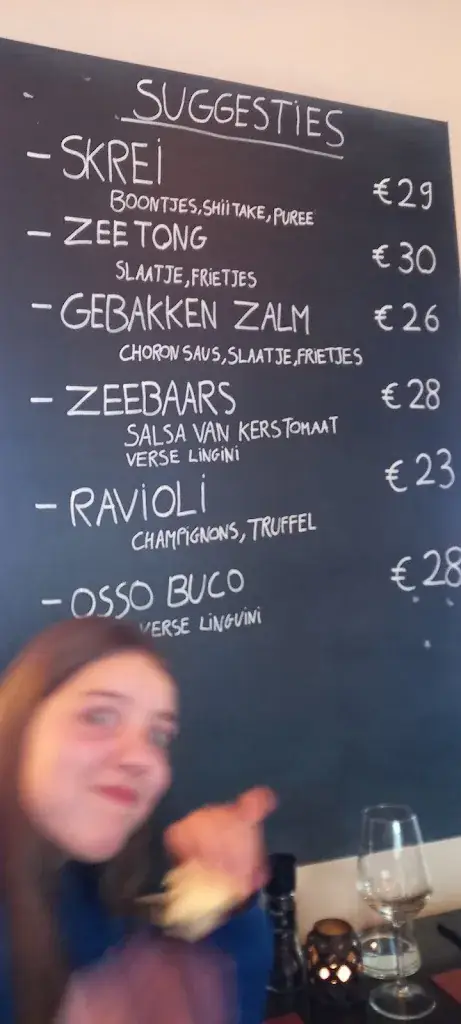 SUGGESTIES
- SKREI €29
BOONTJES, SHIITAKE, PUREE
- ZEETONG €30
SLAATJE, FRIETJES
- GEBAKKEN ZALM €26
CHORON SAUS, SLAATJE, FRIETJES
- ZEEBAARS €28
SALSA VAN KERSTOMAAT
VERSE LINGINI
- RAVIOLI €23
CHAMPIGNONS, TRUFFEL
- OSSO BUCO €28
VERSE LINGUINI